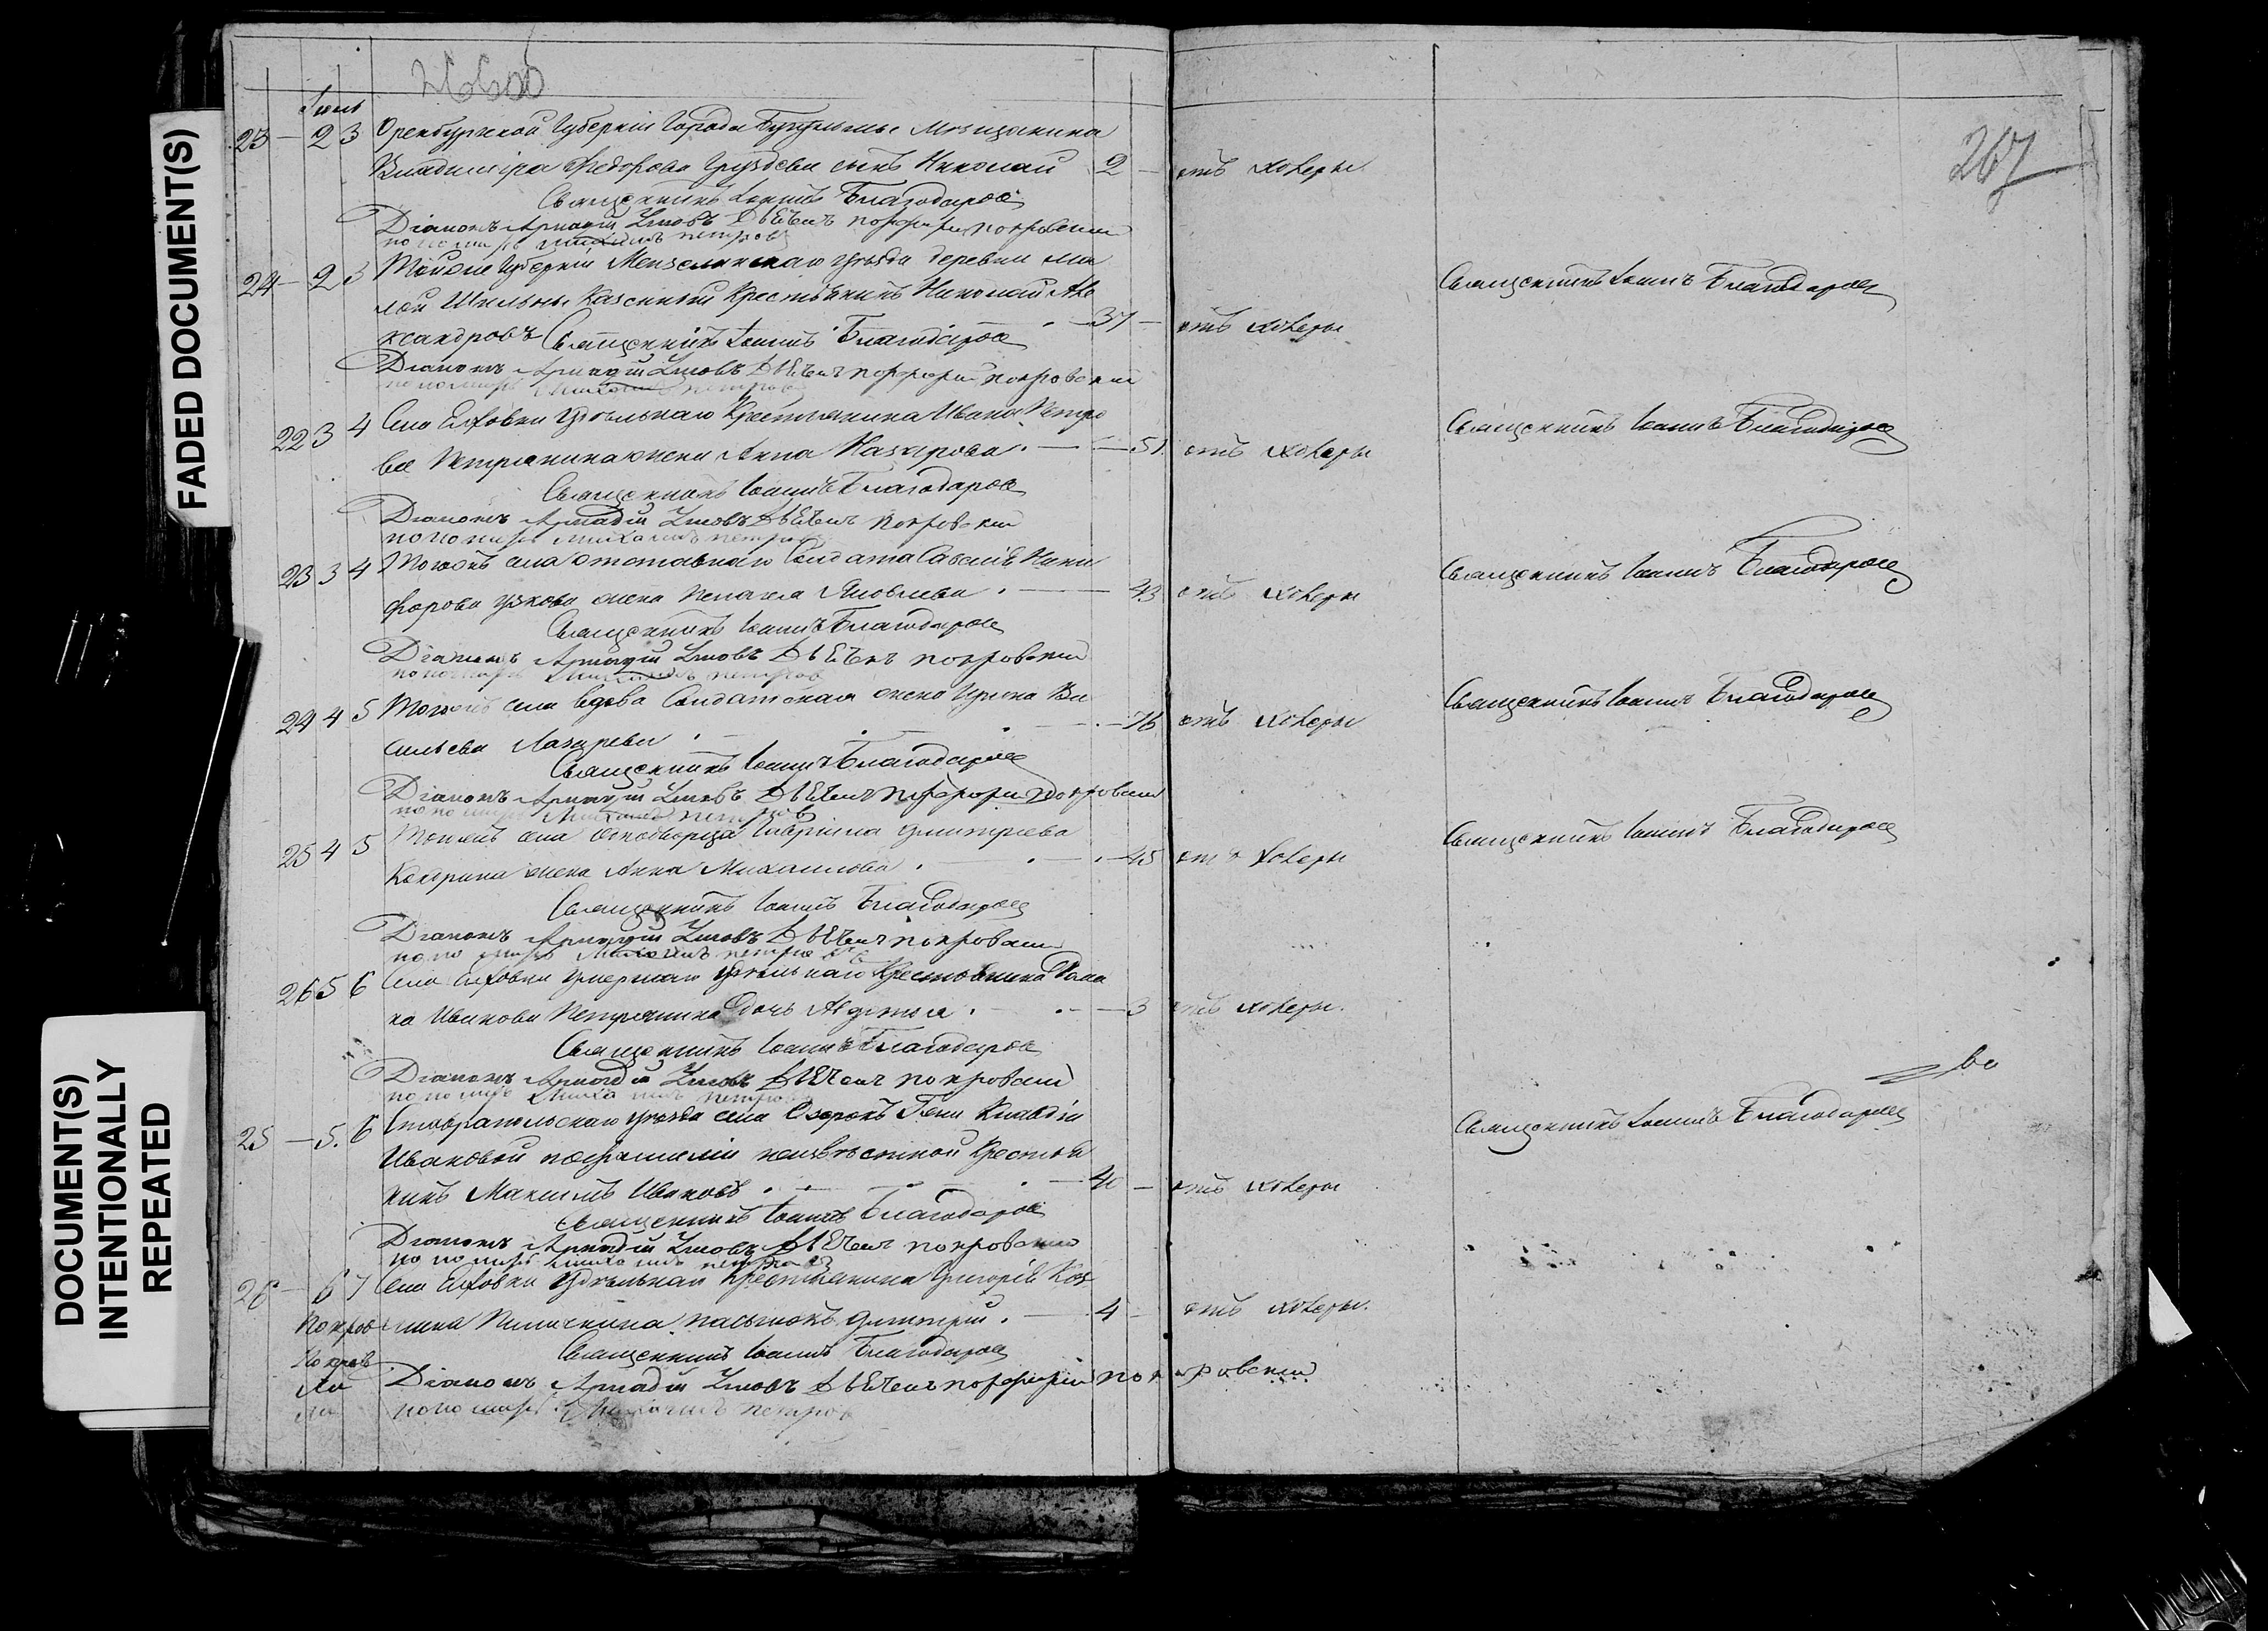 FADED DOCUMENT(S)
DOCUMENT(S)
INTENTIONALLY
REPEATED
267
23 — 2 3 Оренбургской Губерніи Города Бугульмы Мѣщанина
Владиміра Федорова Груздева сынъ Николай 2 — отъ холеры.
Священникъ Іоаннъ Благодаровъ
Діаконъ Аркадій Умовъ Дьячекъ порфирій покровскій
пономарь михаилъ петровъ
24 — 2 3 Тойже Губерніи Мензелинскаго уѣзда деревни Ма
лой Шильны Казенный Крестьянинъ Николай Але
ксандровъ 37 — отъ холеры
Священникъ Іоаннъ Благодаровъ
Священникъ Іоаннъ Благодаровъ
Діаконъ Аркадій Умовъ Дьячекъ порфирій покровскій
пономарь михаилъ петровъ
22 3 4 Села Елховки удѣльнаго Крестьянина Ивана Петро
ва жена Анна Назарова. — 51 отъ холеры
Священникъ Іоаннъ Благодаровъ
Священникъ Іоаннъ Благодаровъ
Діаконъ Аркадій Умовъ Дьячекъ покровскій
пономарь михаилъ петровъ
23 3 4 Тогожъ села отставнаго Солдата Савелія Ники
форова жена Пелагея Яковлева. — 43 отъ холеры
Священникъ Іоаннъ Благодаровъ
Священникъ Іоаннъ Благодаровъ
Діаконъ Аркадій Умовъ Дьячекъ покровскій
пономарь михаилъ петровъ
24 4 5 Тогожъ села вдова Солдатская жена Ва
сильева Лазарева — 76 отъ холеры
Священникъ Іоаннъ Благодаровъ
Священникъ Іоаннъ Благодаровъ
Діаконъ Аркадій Умовъ Дьячекъ порфирій покровскій
пономарь михаилъ петровъ
25 4 5 Тогожъ села однодворца Гавріила Дмитріева
жена Анна Михаилова. — 45 отъ холеры
Священникъ Іоаннъ Благодаровъ
Священникъ Іоаннъ Благодаровъ
Діаконъ Аркадій Умовъ Дьячекъ покровскій
пономарь михаилъ петровъ
26 5 6 Села Елховки умершаго удѣльнаго Крестьянина Рома
на Иванова дочь Авдотья. — 3 отъ холеры.
Священникъ Іоаннъ Благодаровъ
Діаконъ Аркадій Умовъ Дьячекъ покровскій
пономарь михаилъ петровъ
25 — 5. 6 Ставропольскаго уѣзда села Озерокъ Клавдіи
Ивановой неизвѣстной Крестья
нинъ Максимъ Ивановъ. — 40 — отъ холеры
Священникъ Іоаннъ Благодаровъ
Священникъ Іоаннъ Благодаровъ
Діаконъ Аркадій Умовъ Дьячекъ покровскій
пономарь михаилъ петровъ
26 — 6 7 Села Елховки Удѣльнаго Крестьянина Григорія Коз
пасынокъ Дмитрій. — 4 — отъ холеры.
Священникъ Іоаннъ Благодаровъ
Діаконъ Аркадій Умовъ Дьячекъ порфирій покровскій
пономарь михаилъ петровъ